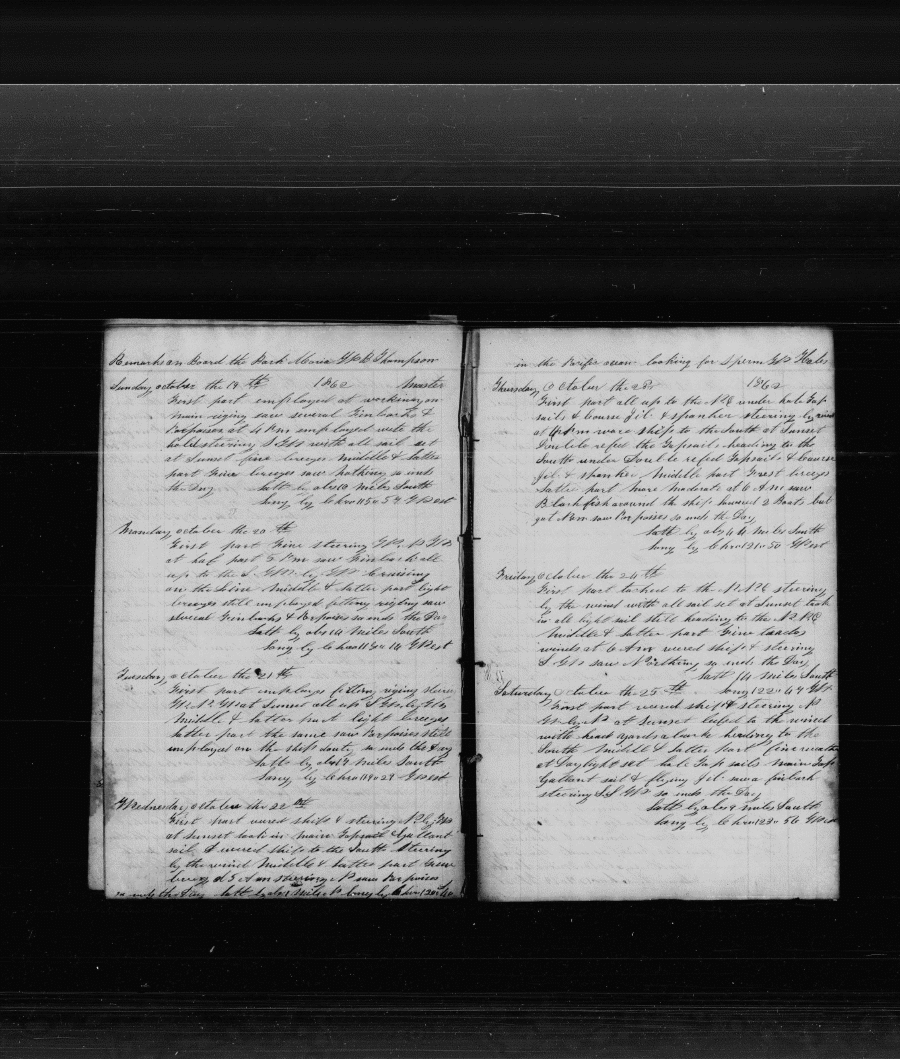 Remarks on Board the Bark Maria G W B Thompson
Sunday october the 19th 1862 Master
First part employed at working on
main riging saw several Finbacks &
Porpoises at 4 Pm employed with the
hold steering S with all sail set
at Sunset fine breezes middle & latter
part fine breezes saw Nothing so ends
the Day Latt by obs miles South
Long by Chro 115o 54 West
Monday october the 20th
First part fine steering
at half part 5 Pm saw Finback all
up to the S by Cruising
on the Line middle & latter part light
breezes still employed fitting riging saw
several Finbacks & Porpoises so ends the Day
Latt by obs 14 miles South
Long by Chro 113o 14 West
Tuesday october the 21th
First part employed fitting riging steering
at Sunset all up
middle & latter part light breezes
latter part the same saw Porpoises still
employed on the ships duty so ends the day
Latt by obs 19 miles South
Long by Chro 119o 29 West
Wednesday october the 22th
First part wered ship & steering N by
at Sunset took in main Topsail & gallant
sail & wered ship to the South Steering
by the wind middle & latter part fine
breezes at 5 Am steering N saw Porpoises
so ends the Day Latt by obs miles N Long by Chro 120o
in the Pacific ocean looking for Sperm Whales
Thursday October the 23 1862
First part all up to the under hole Top
sails & Course jib & spanker steering by wind
at 4 Pm wore ship to the South at Sunset
Double refed the Topsails heading to the
South under Double refed Topsails & Course
jib & spanker middle part Brest breezes
latter part more moderate at 6 Am saw
Blackfish around the ship lowered 2 Boats but
got Non saw Porpoises so ends the Day
Latt by obs 44 miles South
Long by Chro 121o 50 West
Friday october the 24th
First part tacked to the N N E steering
by the wind with all sail set at Sunset took
in all light sail still heading to the N N E
middle & latter part fine trades
winds at 6 Am wered ship & steering
S saw Nothing so ends the Day
Latt 14 miles South
Saturday october the 25th Long 122o 47 W
First part wered ship & steering N
by N at Sunset lufed to the wind
with head yards aback heading to the
South middle & latter part fine weather
at Daylight set hole Top sails main Top
Gallant sail & flying jib saw a finback
steering S S W so ends the Day
Latt by obs 4 miles South
Long by Chro 123o 56 West